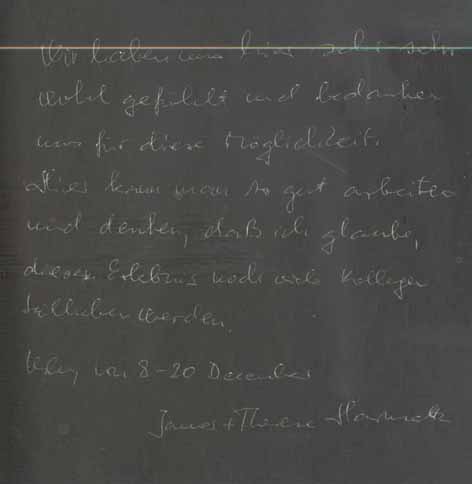 Wir haben uns hier sehr sehr
wohl gefühlt und bedanken
uns für diese Möglichkeit.
Hier kann man so gut arbeiten
und denken, daß ich glaube,
dieses Erlebnis noch viele Kollegen
werden.
von 8-20 December
James + Therese